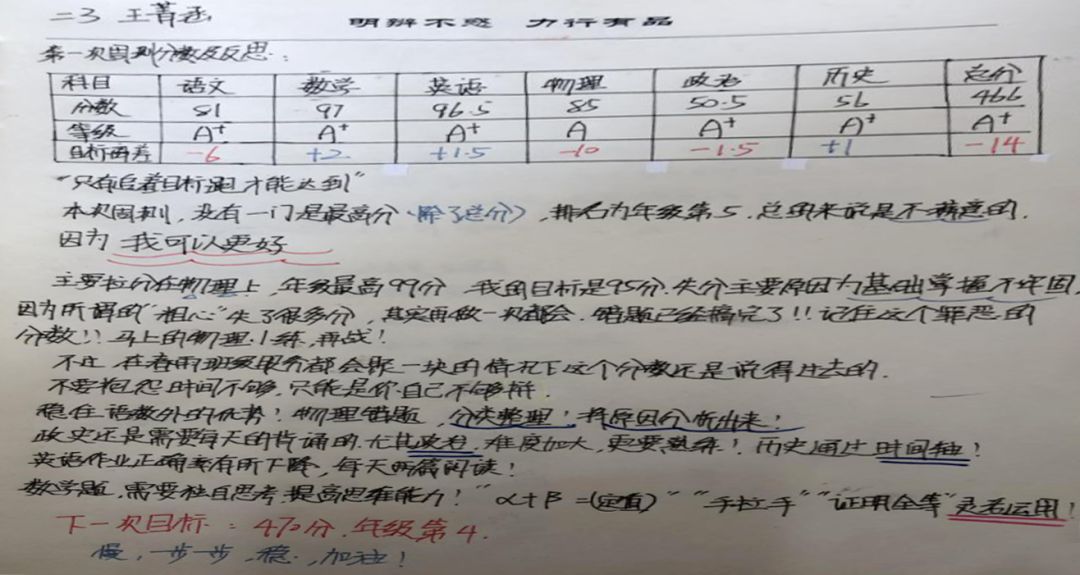 二3 王菁涵
明辨不惑 力行有品
第一次周测分数及反思:
科目 语文 数学 英语 物理 政治 历史 总分
分数 81 97 96.5 85 50.5 56 466
等级 A+ A+ A+ A A+ A+ A+
目标两差 -6 +2 +1.5 -10 -1.5 +1 -14
"只有追着目标跑才能达到"
本次周测,没有一门是最高分(除了总分),排名为年级第5.总的来说是不满意的.
因为 我可以更好
主要拉分在物理上,年级最高99分 我的目标是95分.失分主要原因为基础掌握不牢固,
因为所谓的"粗心"失了很多分,其实再做一次都会.错题已经搞完了!!记住这个罪恶的
分数!!马上的物理小练,再战!
不过 在春雨班级服务都会聚一块的情况下这个分数还是说得过去的.
不要抱怨时间不够,只能是你自己不够拼.
稳住语数外的优势!物理错题,分类整理!将原因分析出来!
政史还是需要每天的背诵的.尤其政治,难度加大,更要熟练!历史通过时间轴!
英语作业正确率有所下降,每天两篇阅读!
数学题,需要独自思考 提高思维能力!"α+β=(定值)""手拉手""证明全等"灵活运用!
下一次目标:470分.年级第4.
慢,一步一步,稳.,加油!